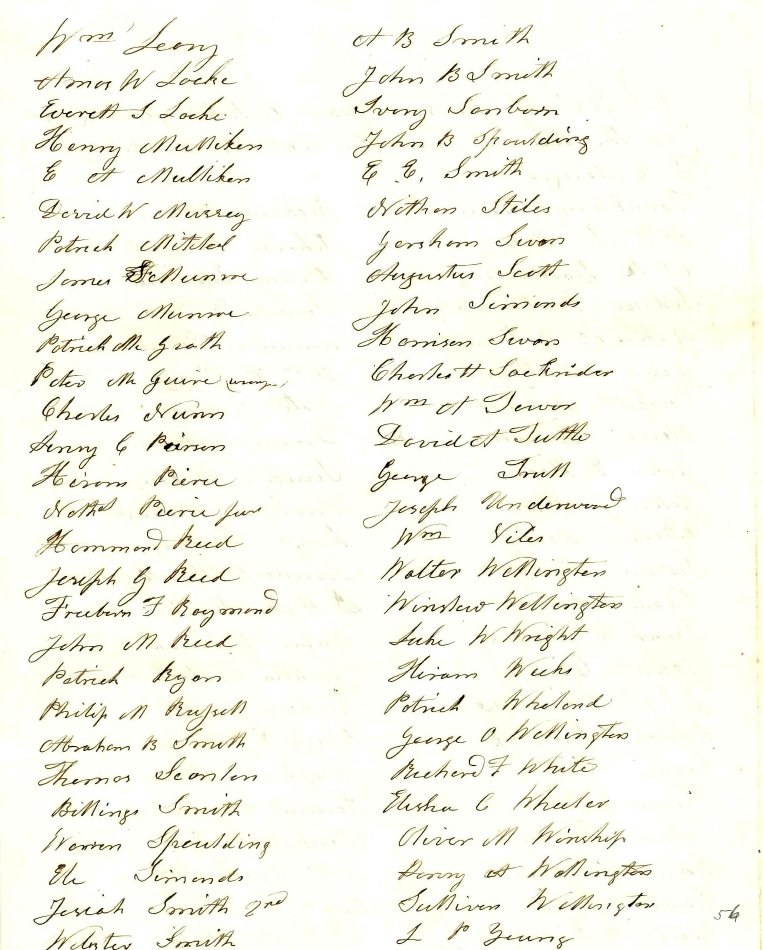 Wm Leary
Amos W Locke
Everett S Locke
Henry Mulliken
E A Mulliken
David W Muzzey
Patrick Mitchel
James S Munroe
George Munroe
Patrick Mc Grath
Peter Mc Guire
Charles Nunn
Henry C Pierson
Hiram Pierce
Nathl Pierce Junr
Hammond Reed
Joseph G Reed
Freeborn F Raymond
John M Reed
Patrick Ryan
Philip M Russell
Abraham B Smith
Thomas Scanlan
Billings Smith
Warren Spaulding
Eli Simonds
Josiah Smith 2nd
Webster Smith
A B Smith
John B Smith
Ivory Sanborn
John B Spaulding
E E. Smith
Nathan Stiles
Gersham Swan
Augustus Scott
John Simonds
Harrison Swan
Charles H Sackrider
Wm A
David A Tuttle
George Trull
Joseph Underwood
Wm Viles
Walter Wellington
Winslow Wellington
Luke W Wright
Hiram Weeks
Patrick Wheland
George O Wellington
Richard F White
Elisha C Wheeler
Oliver M Winship
Henry A Wellington
Sullivan Wellington
L P Young
56